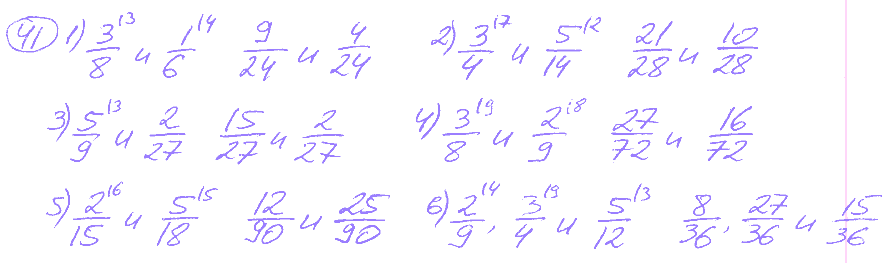 41 1) 3/8 ^3 и 1/6 ^4 9/24 и 4/24 2) 3/4 ^7 и 5/14 ^2 21/28 и 10/28
3) 5/9 ^3 и 2/27 15/27 и 2/27 4) 3/8 ^9 и 2/9 ^8 27/72 и 16/72
5) 2/15 ^6 и 5/18 ^5 12/90 и 25/90 6) 2/9 ^4, 3/4 ^9 и 5/12 ^3 8/36, 27/36 и 15/36